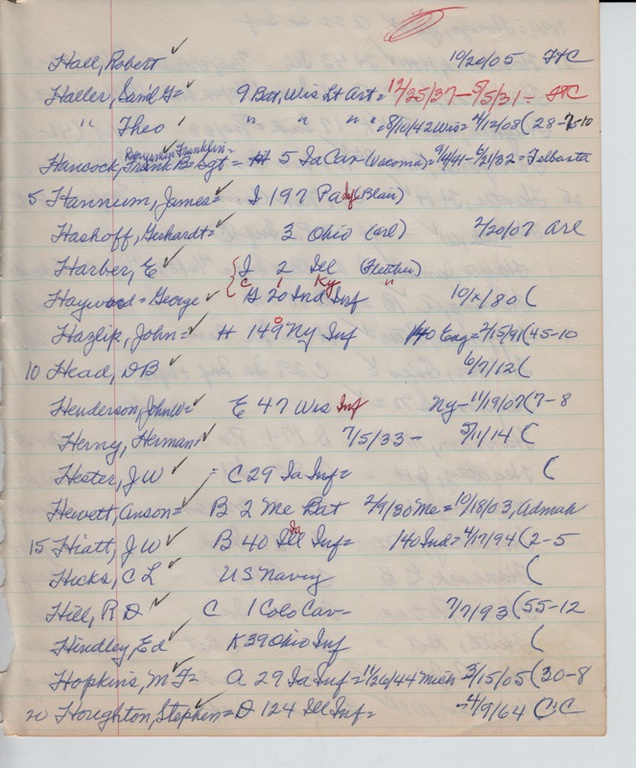 Hall, Robert ✓ 10/20/05 FTC
Haller, Saml G= 9 Bat, Wis Lt Art= 12/25/37-8/5/31- FTC
" Theo ✓ " " " " =8/10/42 Wis= 4/12/08 (28-7-10
Benjamin Franklin=
Hancock, Frank B= Sgt = H 5 Ia Cav (Vacoma)= 9/4/41- 6/21/32=Telbasta
5 Hannum, James= ✓ I 197 Pa Inf (Blair)
Hashoff, Gerhardt= ✓ 3 Ohio (arl) 2/20/07 arl
Harber, E ✓ { I 2 Ill (Fletcher)
C 1 Ky "
Haywood = George ✓ G 20 Ind Inf 10/1/80 (
Hazlip, John= ✓ H 149 Ny Inf Eng=2/15/91 (45-10
10 Head, DB ✓ 6/7/12 (
Henderson, John W= ✓ E 47 Wis Inf Ny-11/19/07 (7-8
Herny, Herman ✓ 7/5/33- 5/11/14 (
Hester, J W ✓ = C 29 Ia Inf= (
Hewett, Anson= ✓ B 2 Me Bat 2/9/30 Me= 10/18/03, Admah
Ia
15 Hiatt, J W ✓ B 40 Ill Inf= 140 Ind= 4/17/94 (2-5
Hicks, C L ✓ US Navy (
Hill, R D ✓ C 1 Colo Cav- 7/7/93 (55-12
Hindley, Ed ✓ K 39 Ohio Inf (
Hopkins, M F= ✓ A 29 Ia Inf= 11/26/44 Mich 3/15/05 (30-8
20 Houghton, Stephen= ✓ D 124 Ill Inf= -4/9/64 C:C